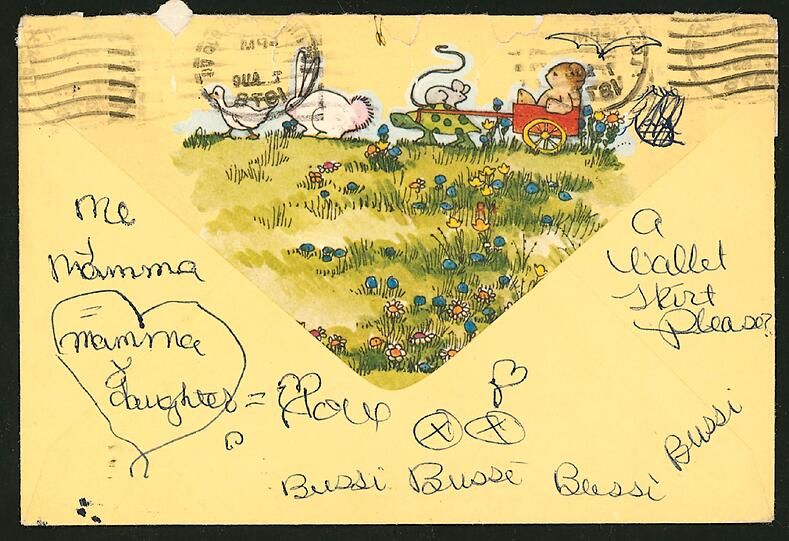 PM
AUG
Me
&
Mamma
=
mamma
&
daughter = Love
A
Wallet
Skirt
please?
Bussi Bussi Bussi Bussi